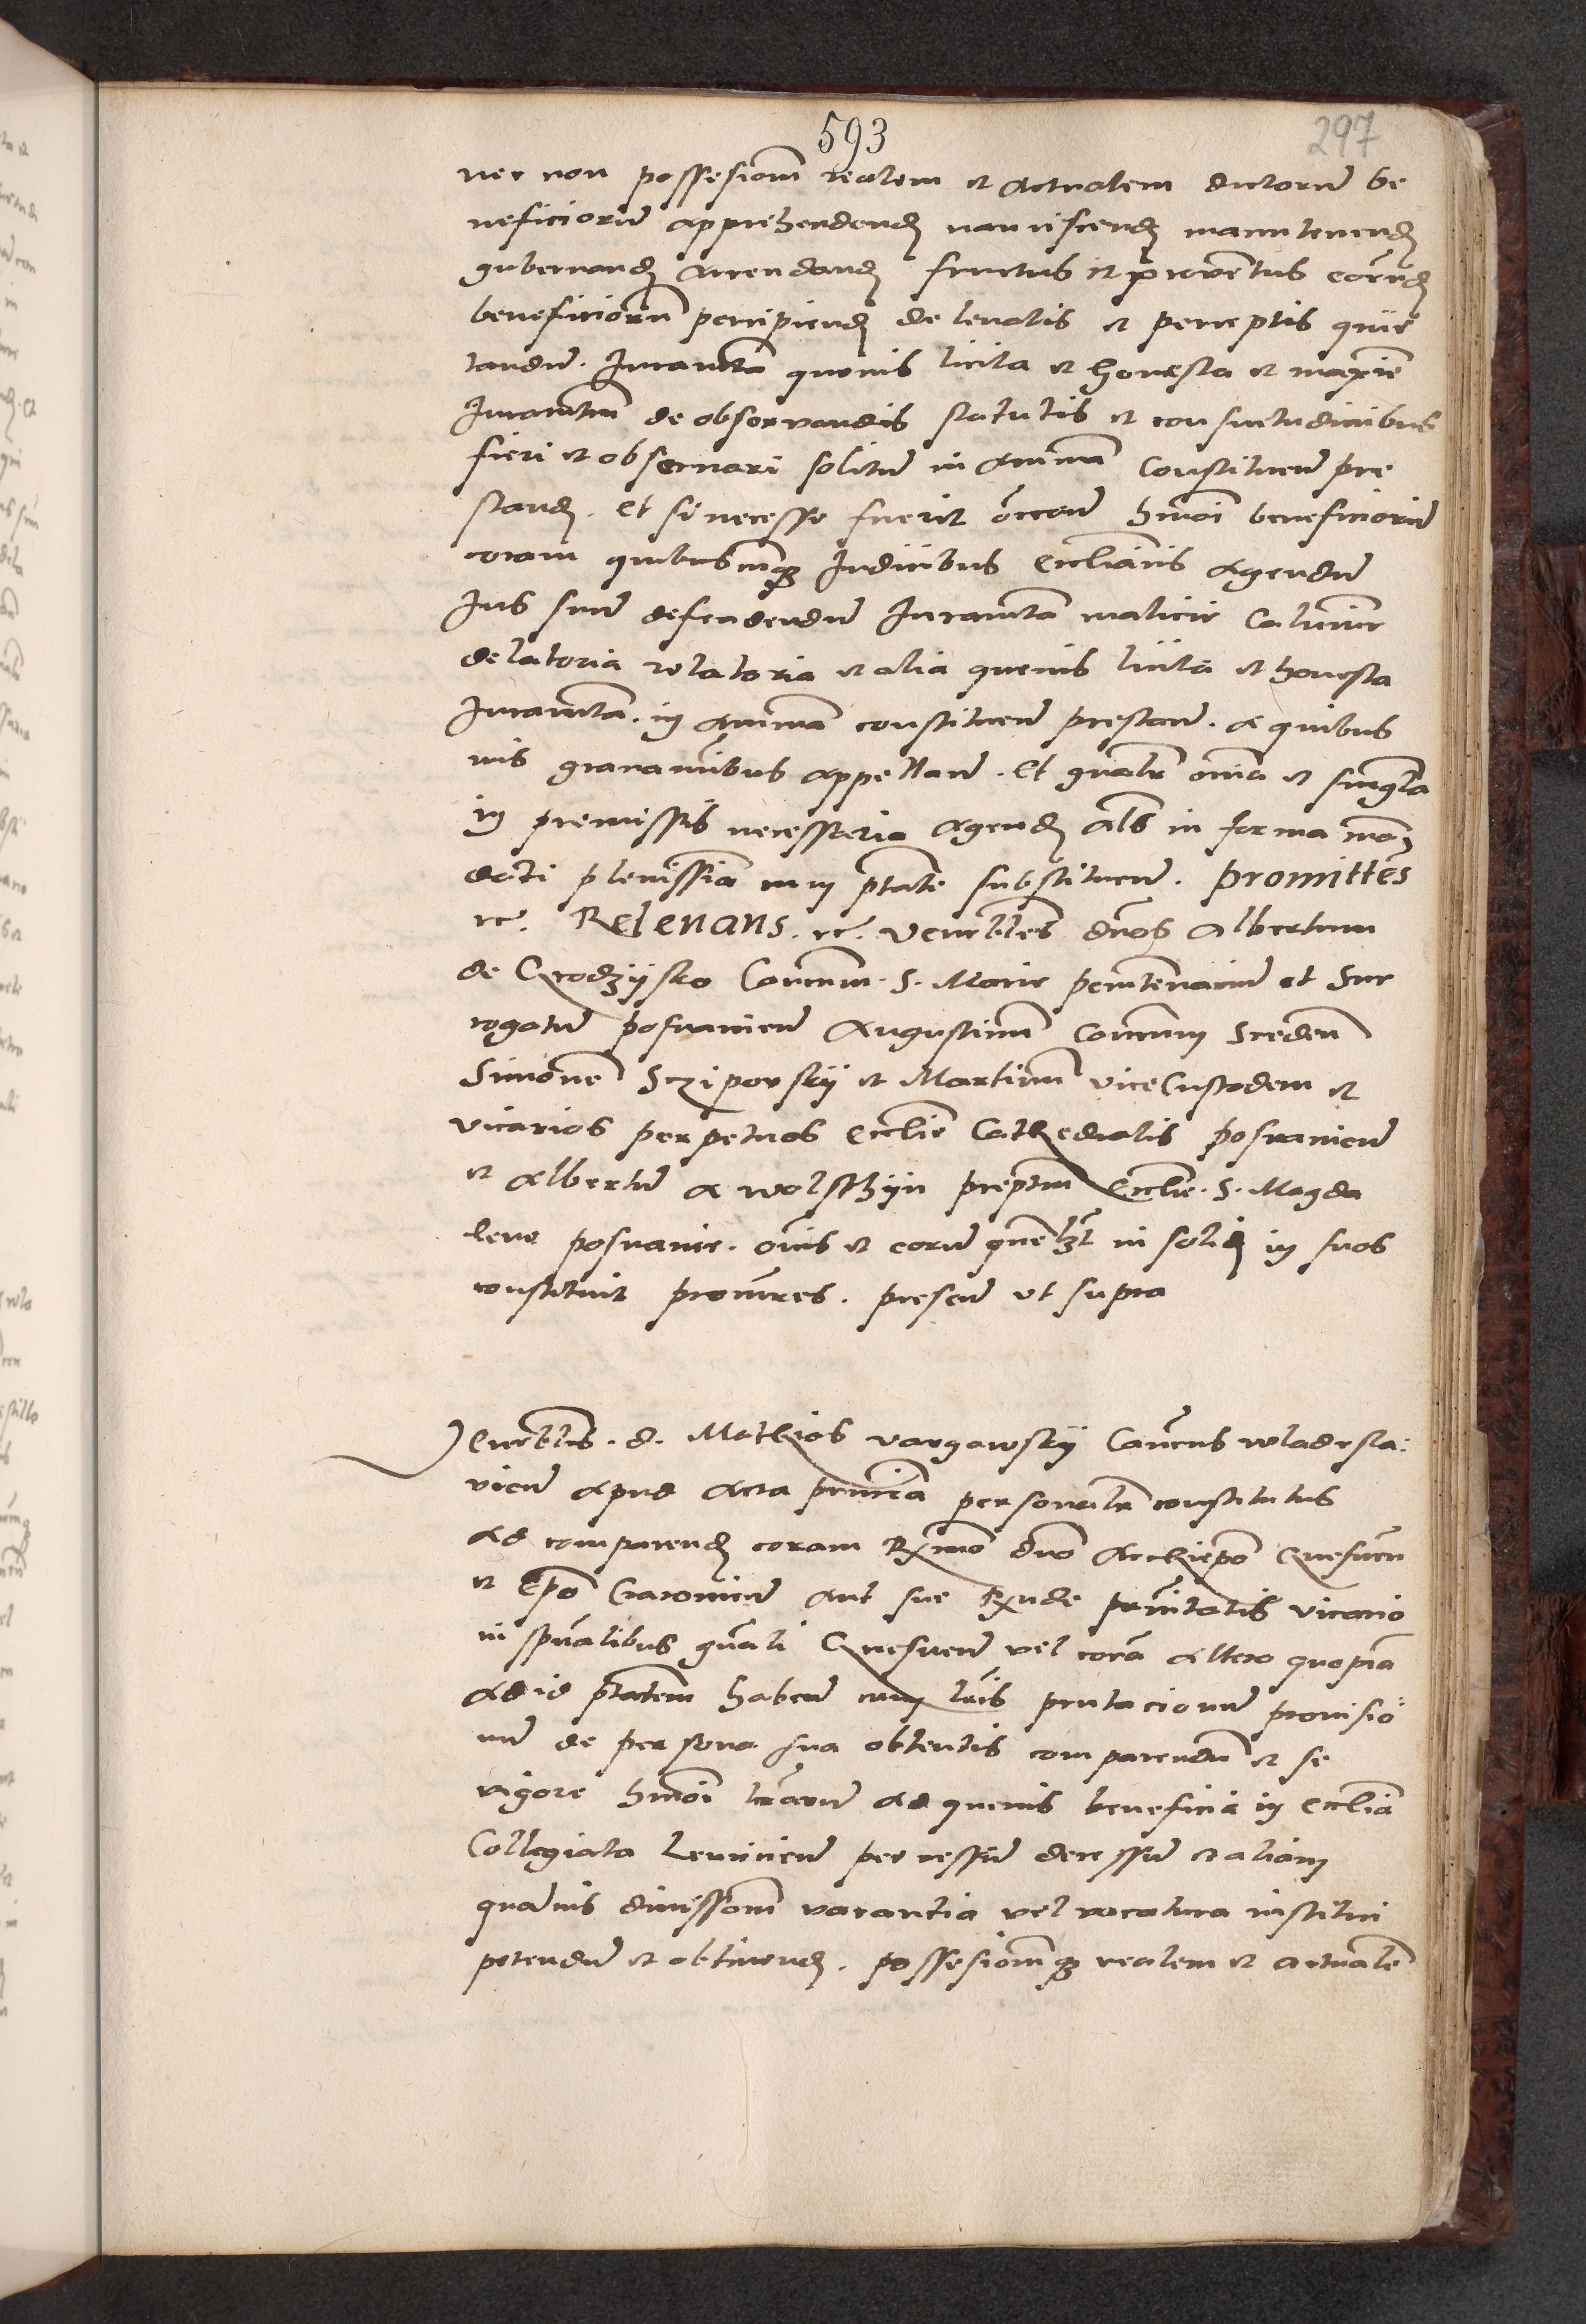 593
297
nec non possesionem realem et actualem dictorum be
neficiorum apprehendend nanciscend manutenend
gubernand arrendand fructus et proventus eorund
beneficiorum percipiend de levatis et perceptis quie
tandum. Iuramta quevis licita et honesta et maxime
Iuramtum de observandis statutis et consuetudinibus
fieri et observari solitum in animam constituen pre
stand. et si necesse fuerit occon hmoi beneficiorum
coram quibuscunq Iudicibus ecclianis agendum
Ius suum defendendum Iuramta malicie Calumnie
delatoria relatoria et alia quevis licita et honesta
Iuramta. in animam constituen prestan. a quibus
vis gravaminibus appellan. Et gnalr omia et singla
in premissis necessaria agend als in forma man
dati plenissima cum ptate substituen. promittes
rc. Relevans. rc. Venerbles dnos Albertum
de Grodzysko Canonicum. S. Marie penitenciarium et Sur
rogatum posnanien Augustinum Canonicum Sreden
Simonem Scziporsky et Martinum viceCustodem et
vicarios perpetuos ecclie Cathedralis posnanien
et Albertum a wolschyn preptum Ecclie. S. Magda
lene posnanie. omis et eorum quemlzt in solid in suos
constituit procures. presen ut supra
Venerblis. d. Mathias vargawsky Canonicus wladisla:
vien apud acta prncia personalr constitutus
ad comparend coram Rmo dno Archiepo Gnesnen
et Epo Cracovien aut sue Rnde prnitatis vicario
in spualibus gnali Gnesnen vel coram altero quopiam
ad id ptatem haben cum lris prntacionum provisio
num de persona sua obtentis comparendum et se
vigore hmoi lrarum ad quevis beneficia in ecclia
Collegiata Lencicien per cessum decessum et aliam
quamvis dimissionem vacantia vel vacatura institui
petendum et obtinend. possesionemq realem et actualem